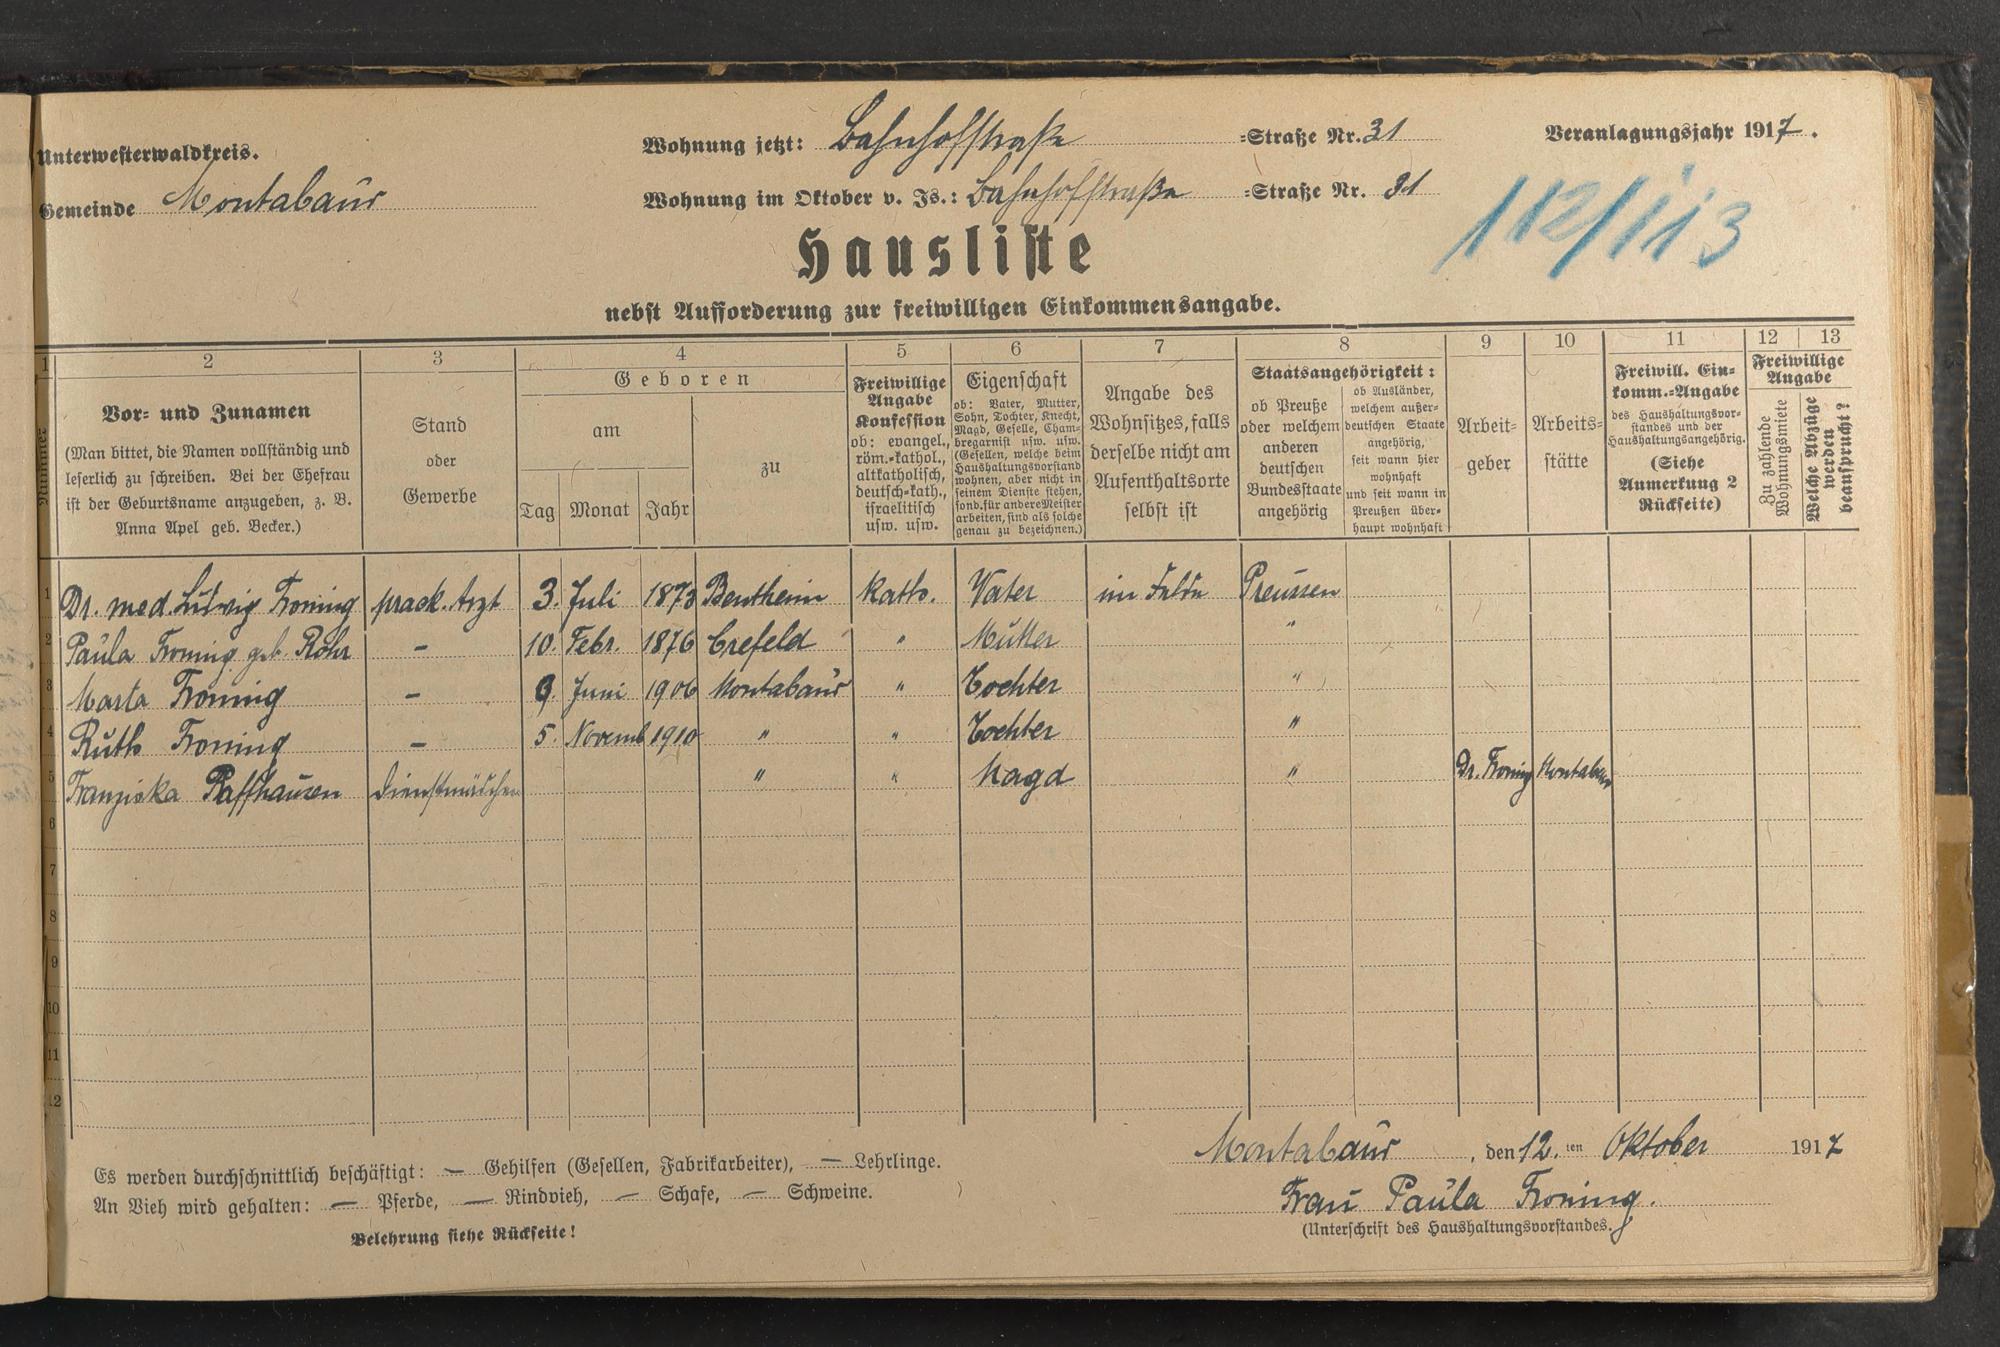 Unterwesterwaldkreis.
Gemeinde Montabaur
Wohnung jetzt: Bahnhofstraße =Straße Nr. 31
Wohnung im Oktober v. Js.: Bahnhofstraße =Straße Nr. 31
Veranlagungsjahr 1917.
112/113
Hausliste
nebst Aufforderung zur freiwilligen Einkommensangabe.
1 2 3 4 5 6 7 8 9 10 11 12 13
Nummer
Vor- und Zunamen
(Man bittet, die Namen vollständig und
leserlich zu schreiben. Bei der Ehefrau
ist der Geburtsname anzugeben, z. B.
Anna Apel geb. Becker.)
Stand
oder
Gewerbe
Geboren
am
Tag Monat Jahr
zu
Freiwillige
Angabe
Konfession
ob: evangel.,
röm.-kathol.,
altkatholisch,
deutsch-kath.,
israelitisch
usw. usw.
Eigenschaft
ob: Vater, Mutter,
Sohn, Tochter, Knecht,
Magd, Geselle, Cham-
bregarnist usw. usw.
(Gesellen, welche beim
Haushaltungsvorstand
wohnen, aber nicht in
seinem Dienste stehen,
sond. für andere Meister
arbeiten, sind als solche
genau zu bezeichnen.)
Angabe des
Wohnsitzes, falls
derselbe nicht am
Aufenthaltsorte
selbst ist
Staatsangehörigkeit:
ob Preuße
oder welchem
anderen
deutschen
Bundesstaate
angehörig
ob Ausländer,
welchem außer-
deutschen Staate
angehörig,
seit wann hier
wohnhaft
und seit wann in
Preußen über-
haupt wohnhaft
Arbeit-
geber
Arbeits-
stätte
Freiwill. Ein-
komm.-Angabe
des Haushaltungsvor-
standes und der
Haushaltungsangehörig.
(Siehe
Anmerkung 2
Rückseite)
Freiwillige
Angabe
Zu zahlende
Wohnungsmiete
Welche Abzüge
werden
beansprucht?
1 Dr. med. Ludwig Froning prack. Arzt 3. Juli 1873 Bentheim kath. Vater im Felde Preussen
2 Paula Froning geb. Rohr – 10. Febr. 1876 Crefeld " Mutter "
3 Marta Froning – 9. Juni 1906 Montabaur " Tochter "
4 Ruth Froning – 5. Novemb 1910 " " Tochter "
5 Franziska Raffhausen Dienstmädchen " " Magd " Dr. Froning Montabaur
6
7
8
9
10
11
12
Es werden durchschnittlich beschäftigt: — Gehilfen (Gesellen, Fabrikarbeiter), — Lehrlinge.
An Vieh wird gehalten: — Pferde, — Rindvieh, — Schafe, — Schweine.
Belehrung siehe Rückseite!
Montabaur, den 12. ten Oktober 1917
Frau Paula Froning.
(Unterschrift des Haushaltungsvorstandes.)